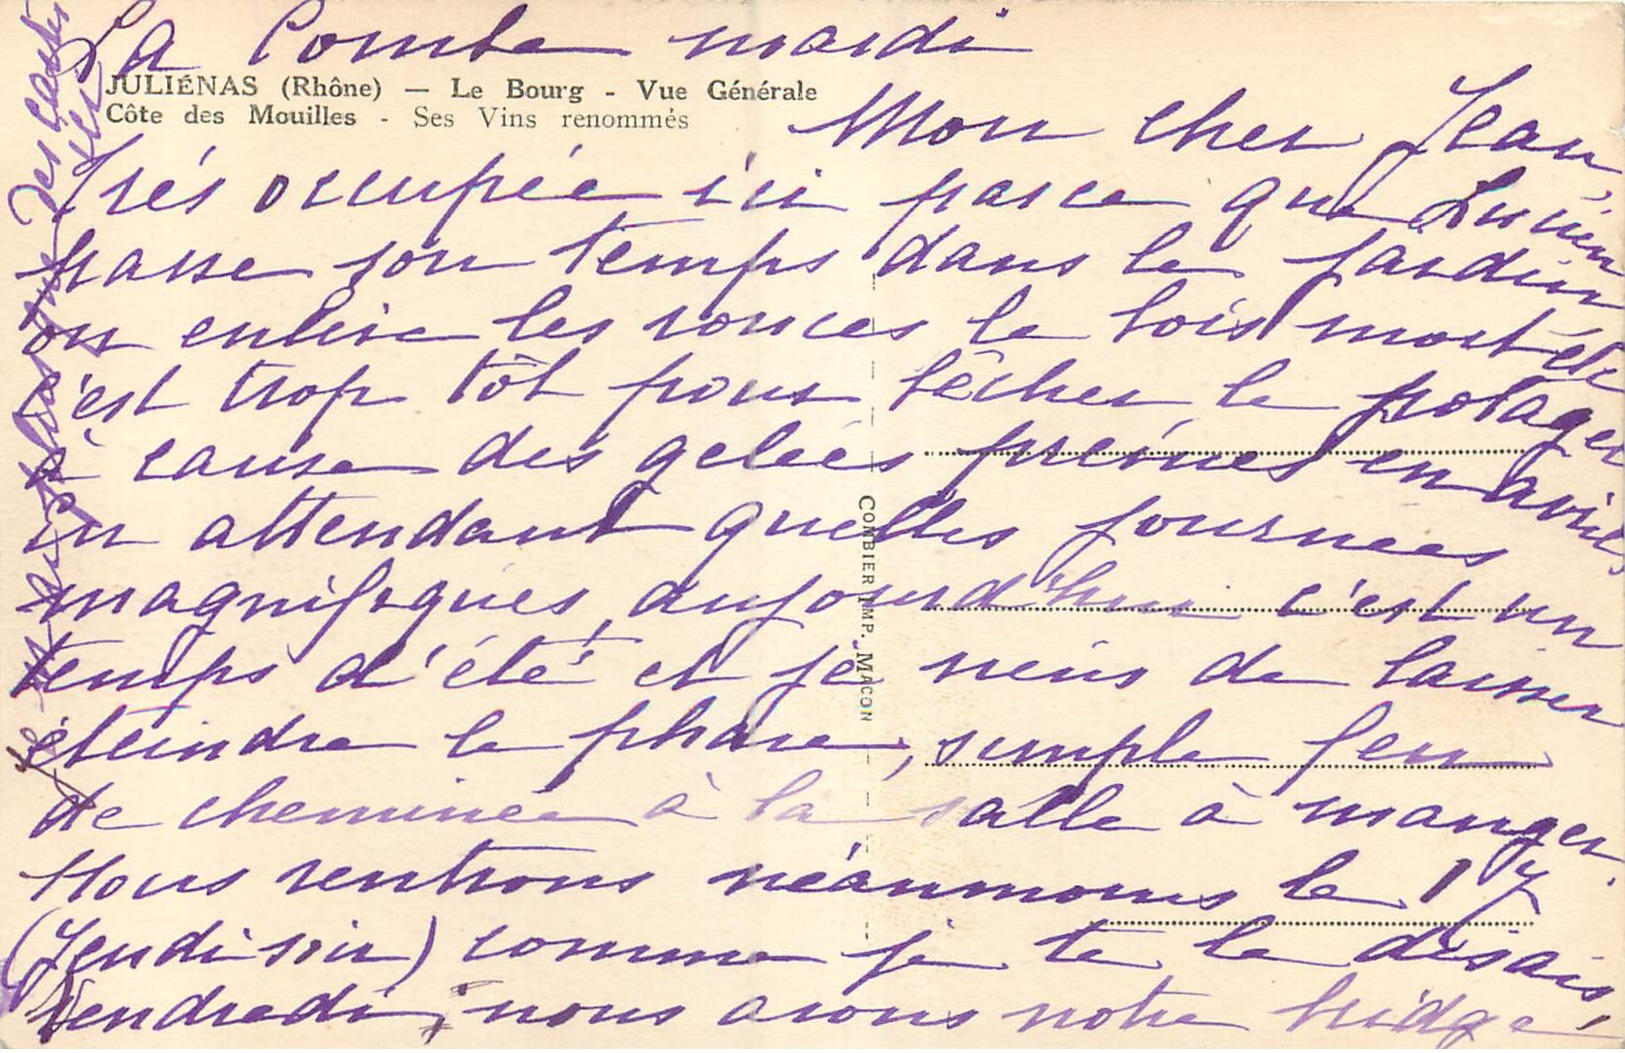 La Combe mardi
JULIÉNAS (Rhône) — Le Bourg - Vue Générale
Côte des Mouilles - Ses Vins renommés
Mon cher Jean,
Très occupée ici parce que Lucien
passe son temps dans le jardin
on enlève les ronces le bois mort etc
c'est trop tôt pour bêcher le potager
à cause des gelées prévues en avril,
en attendant quelles journées
magnifiques, aujourd'hui c'est un
temps d'été et je viens de laisser
éteindre le phare, simple feu
de cheminée à la salle à manger.
Nous rentrons néanmoins le 17
(Jeudi soir) comme je te le disais,
Vendredi, nous avons notre bridge,
je n'ai plus que des cartes
COMBIER IMP. MACON